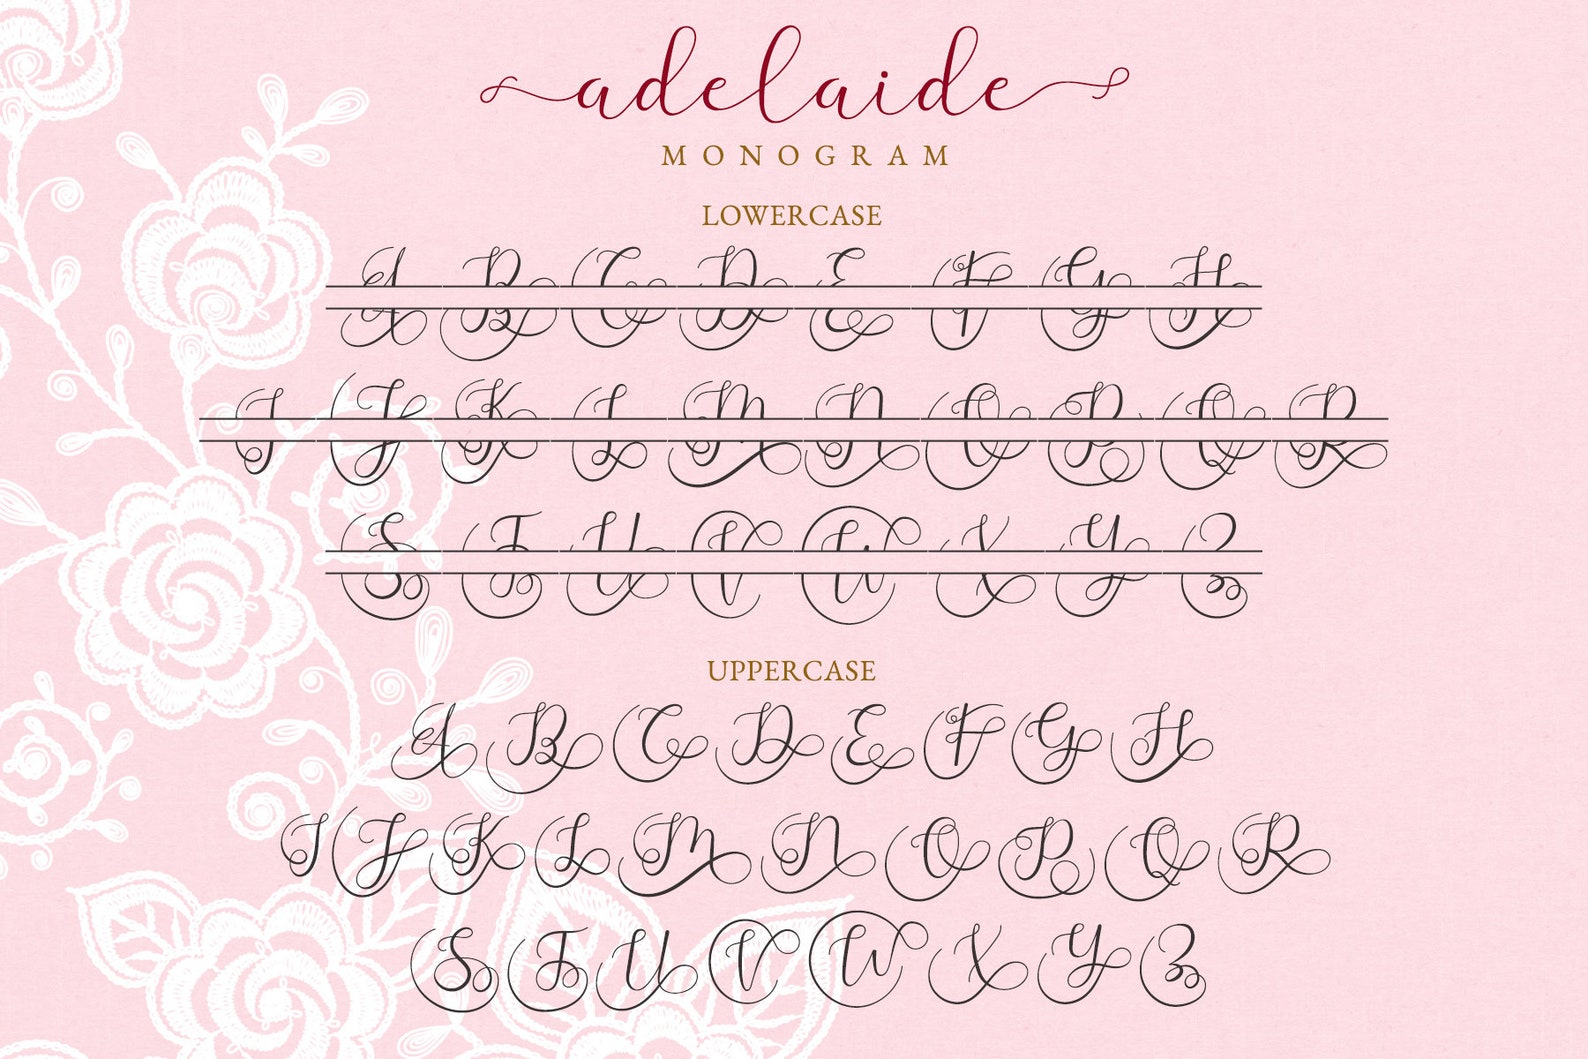 adelaide
MONOGRAM
LOWERCASE
A B C D E F G H
I J K L M N O P Q R
S T U V W X Y Z
UPPERCASE
A B C D E F G H
I J K L M N O P Q R
S T U V W X Y Z